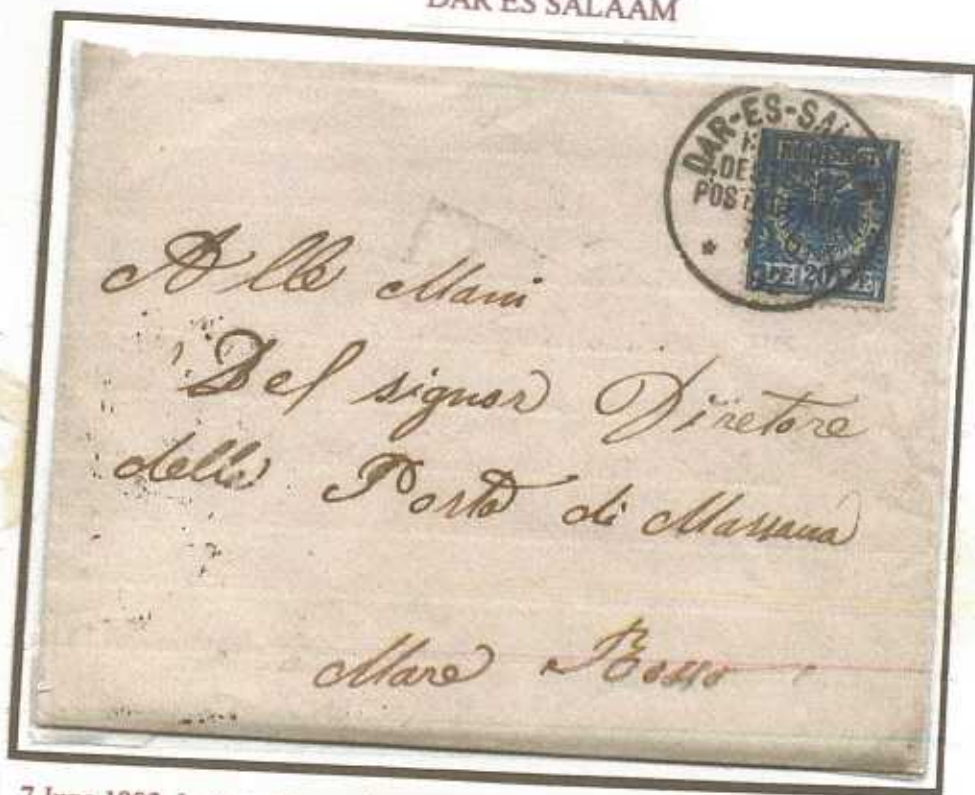 DAR ES SALAAM
DAR-ES-SAL
POST
PF. 20 PF.
Alle Mani
Del signor Diretore
delle Posta di Massaua
Mare Rosso
7 June